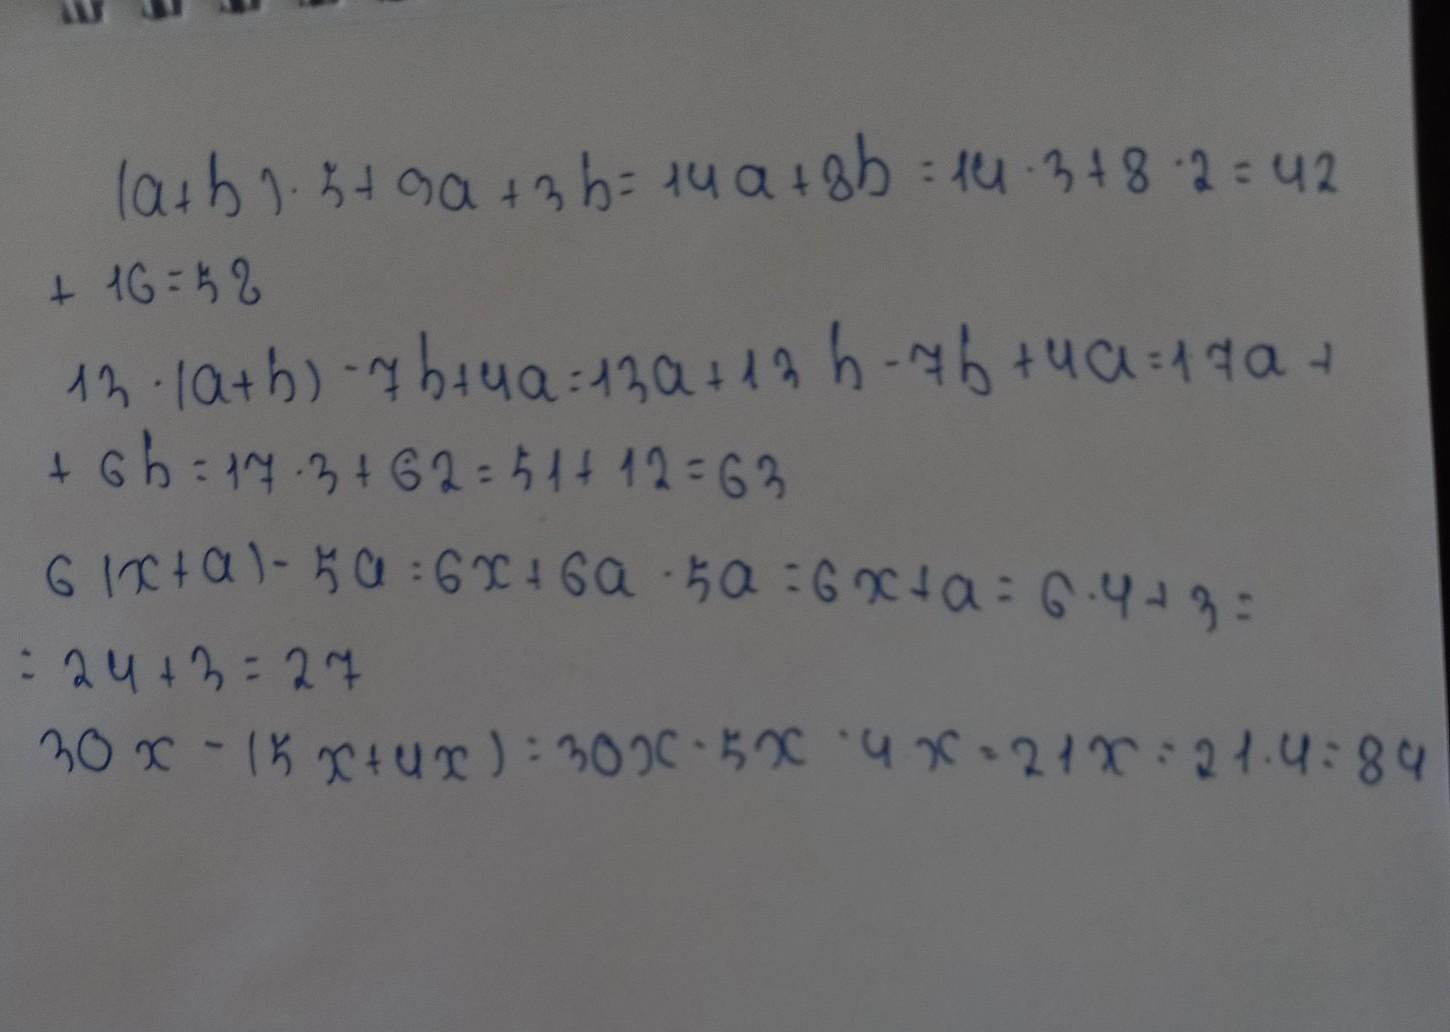 (a+b)·5+9a+3b=14a+8b=14·3+8·2=42
+16=58
13·(a+b)-7b+4a=13a+13b-7b+4a=17a+
+6b=17·3+62=51+12=63
6(x+a)-5a=6x+6a-5a=6x+a=6·4+3=
=24+3=27
30x-(5x+4x)=30x-5x-4x=21x=21·4=84